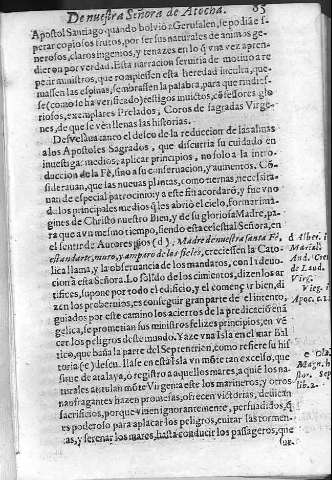 De nuestra Señora de Atocha. 85
Apostol Santiago quando bolviò a Gerusalen, se podia es-
perar copiosos frutos, por ser sus naturales de animos ge-
nerosos, claros ingenios, y tenazes en lo q̃ una vez apren-
dieron por verdad. Esta narracion serviria de motivo a re-
petir ministros, que rompiessen esta heredad inculta, que-
massen las espinas, sembrassen la palabra, para que rindies-
se (como se ha verificado) testigos invictos, cõfessores glo
riosos, exemplares Prelados, Coros de sagradas Virge-
nes, de que se ven llenas las historias.
Desvelava tanto el deseo de la reduccion de las almas
a los Apostoles Sagrados, que discurria su cuidado en
investigar medios, aplicar principios, no solo a la intro-
duccion de la Fè, sino a su conservacion, y aumentos. Cõ-
sideravan, que las nuevas plantas, como tiernas, necessita-
van de especial patrocinio; y a este fin acordarõ, y fue uno
de los principales medios q̃ les abriò el cielo, formar ima-
gines de Christo nuestro Bien, y de su gloriosa Madre, pa-
ra que a un mesmo tiempo, siendo esta celestial Señora, en
el sentir de Autores pios (d), Madre de nuestra santa Fè,
estandarte, muro, y amparo de los fieles, creciessen la Cato
lica llama, y la observancia de los mandatos, con la devo-
cion a esta Señora. Lo solido de los cimientos, dizen los ar
tifices, supone por todo el edificio, y el començar bien, di-
zen los proberbios, es conseguir gran parte del intento,
guiados por este camino los aciertos de la predicaciõ evã
gelica, se prometian sus ministros felizes principios, en vẽ
cer los peligros deste mundo. Yaze una Isla en el mar Bal
tico, que baña la parte del Septentrion, como refiere su his
toria (e) descu. Ilase en esta Isla un mõte tan excelso, que
sirve de atalaya, ò registro a aquellos mares, a quiẽ los na-
turales intitulan mõte Virgenia este los marineros, y otros
naufragantes hazen promesas, ofrecen victorias, dedican
sacrificios, porque viven ignorantemente, persuadidos, q̃
es poderoso para aplacar los peligros, quitar las tormen-
tas, y serenar los mares, hasta conducir los passageros, que
sur-
d Alber. i
Mariall.
And. Cret
de Laud.
Virg.
Vieg. i
Apoc. c. 1.
e Ola.
Magn. h
stor. Sep
lib. 2.